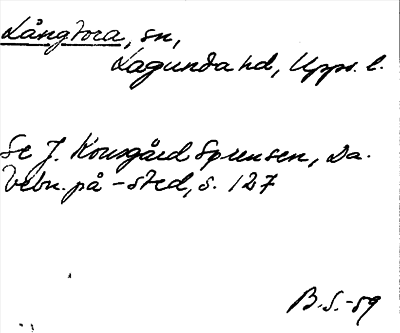 Långtora, sn,
Lagunda hd, Upps. l.
Se J. Kousgård Sørensen, Da.
Vebn. på -sted, s. 127
B.S. -59